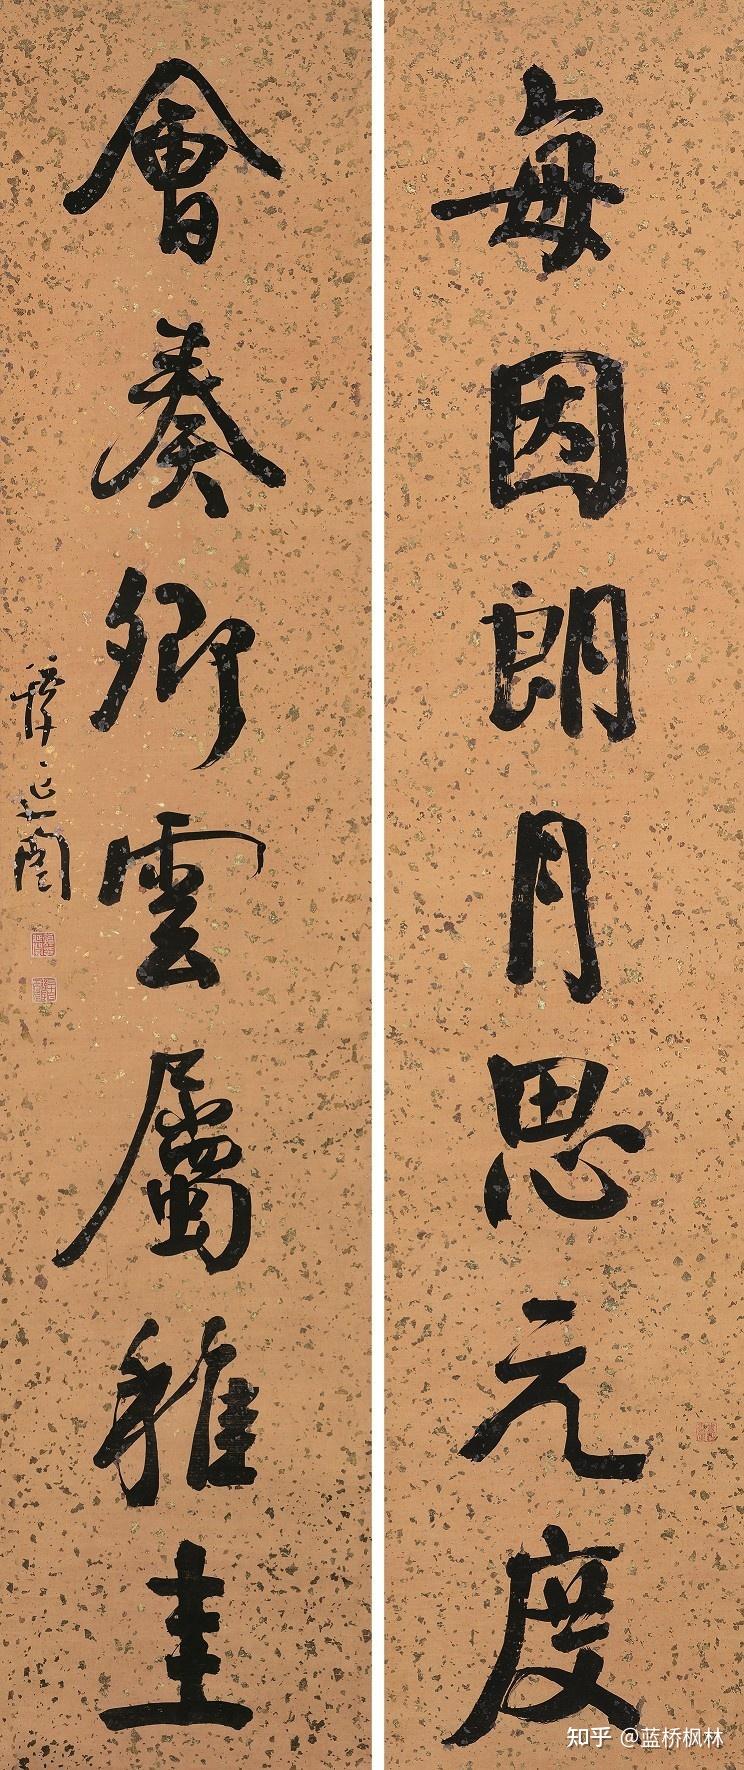 每因朗月思元度
會奏卿雲屬雅圭
譚延闓
知乎 @蓝桥枫林